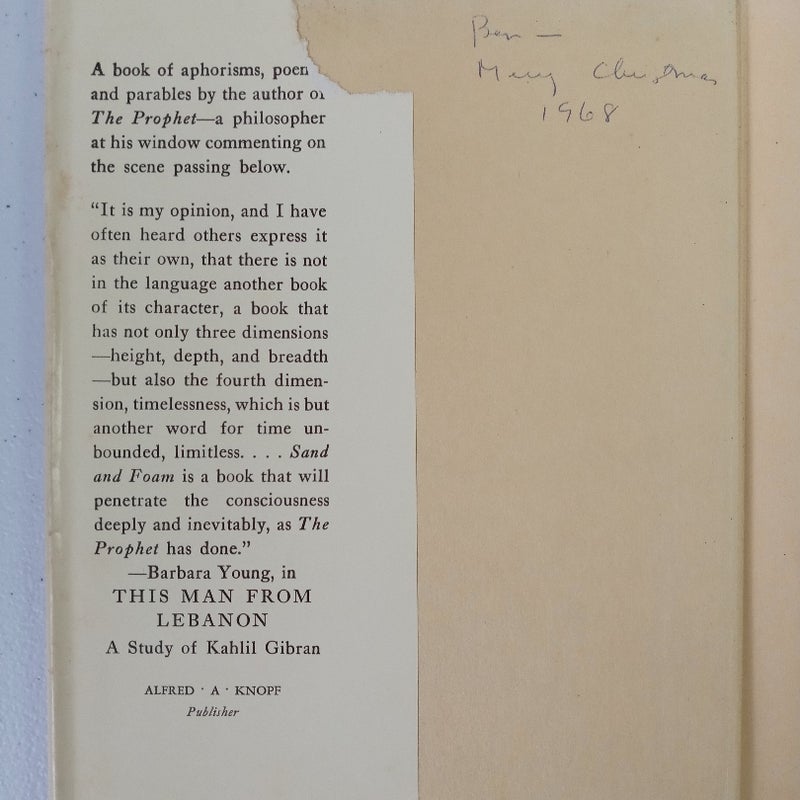 A book of aphorisms, poem
and parables by the author of
The Prophet—a philosopher
at his window commenting on
the scene passing below.
“It is my opinion, and I have
often heard others express it
as their own, that there is not
in the language another book
of its character, a book that
has not only three dimensions
—height, depth, and breadth
—but also the fourth dimen-
sion, timelessness, which is but
another word for time un-
bounded, limitless. . . . Sand
and Foam is a book that will
penetrate the consciousness
deeply and inevitably, as The
Prophet has done.”
—Barbara Young, in
THIS MAN FROM
LEBANON
A Study of Kahlil Gibran
ALFRED · A · KNOPF
Publisher
Merry Christmas
1968